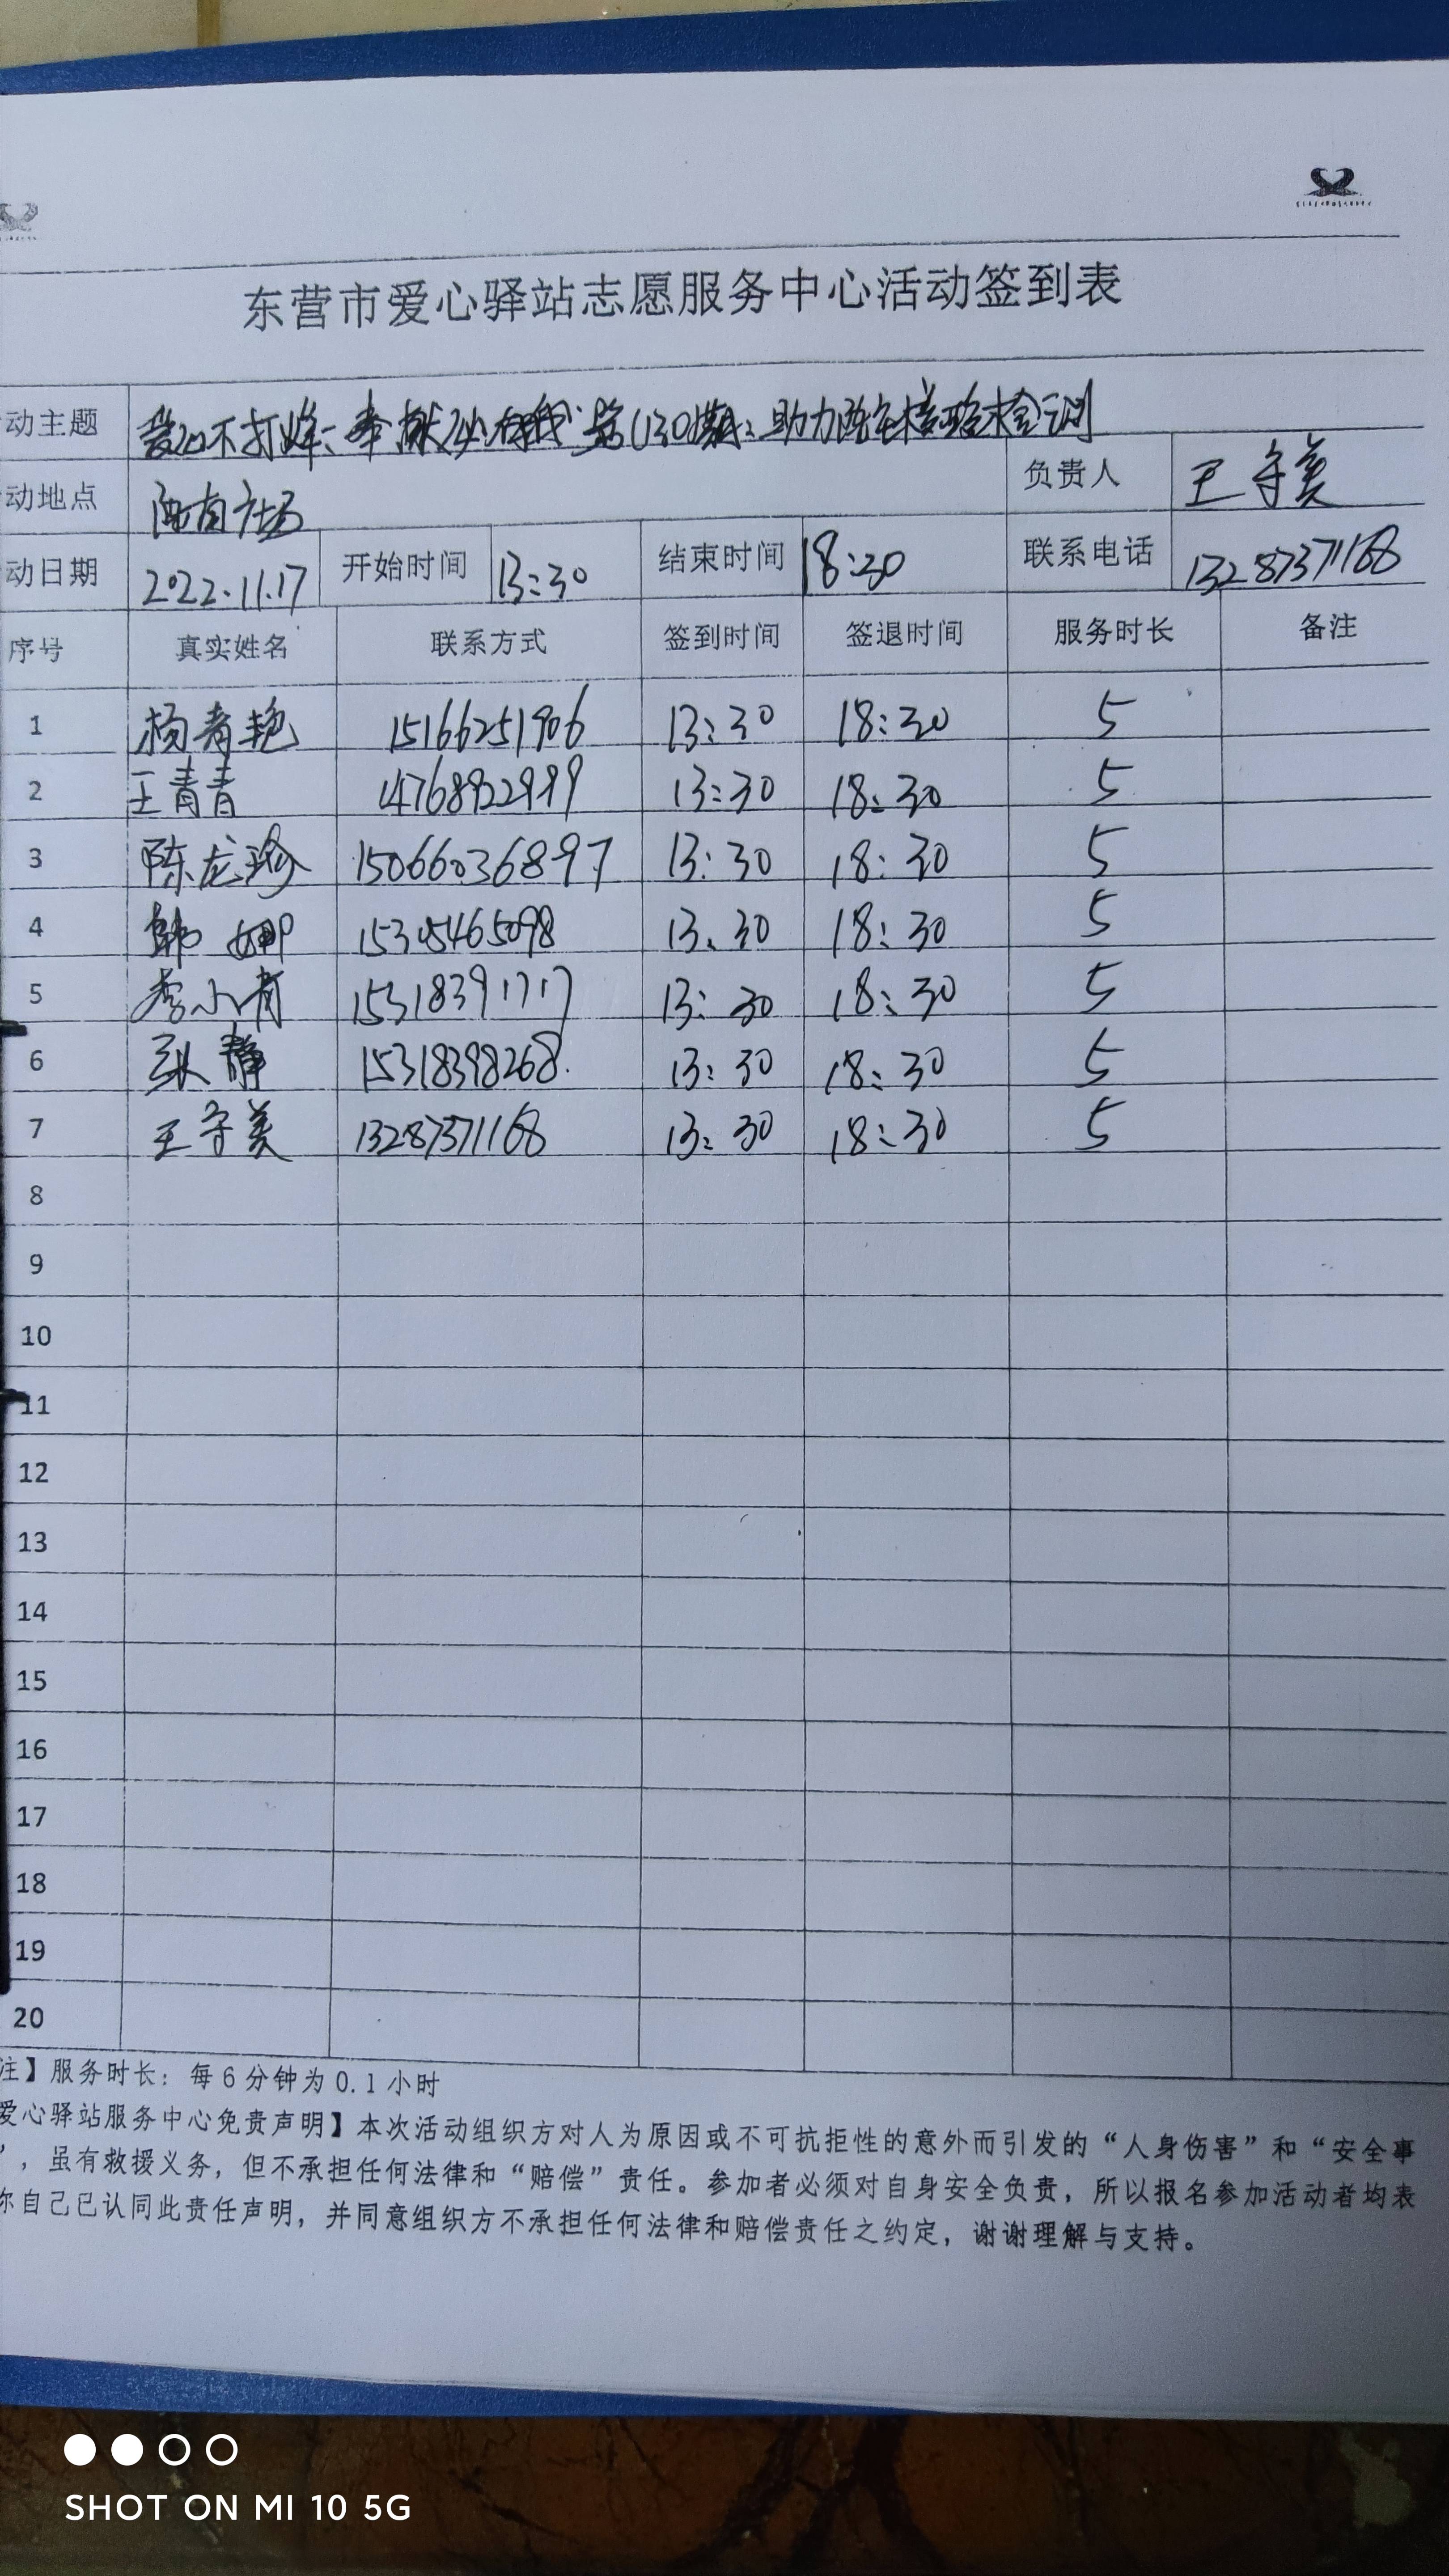 东营市爱心驿站志愿服务中心活动签到表
动主题 爱心不打烊、奉献必有我第130期：助力全核酸检测
动地点 广场 负责人 王守美
动日期 2022.11.17 开始时间 13:30 结束时间 18:30 联系电话 13287371168
序号 真实姓名 联系方式 签到时间 签退时间 服务时长 备注
1 杨青艳 15166251906 13:30 18:30 5
2 王青青 13:30 18:30 5
3 陈龙珍 15066036897 13:30 18:30 5
4 韩娜 15315465098 13:30 18:30 5
5 李小青 15318391717 13:30 18:30 5
6 耿静 15318398268. 13:30 18:30 5
7 王守美 13287371168 13:30 18:30 5
8
9
10
11
12
13
14
15
16
17
18
19
20
注】服务时长：每6分钟为0.1小时
爱心驿站服务中心免责声明】本次活动组织方对人为原因或不可抗拒性的意外而引发的“人身伤害”和“安全事
”，虽有救援义务，但不承担任何法律和“赔偿”责任。参加者必须对自身安全负责，所以报名参加活动者均表
你自己已认同此责任声明，并同意组织方不承担任何法律和赔偿责任之约定，谢谢理解与支持。
SHOT ON MI 10 5G